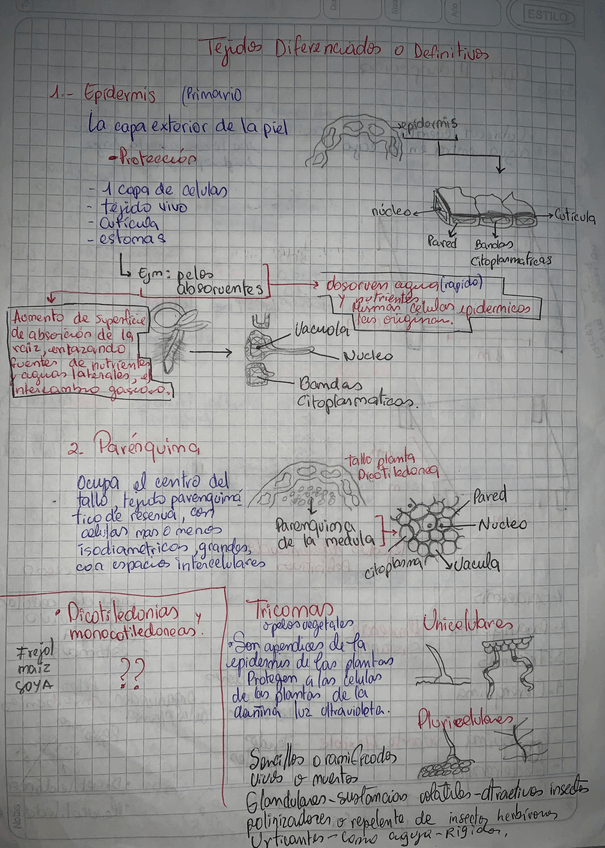 ESTILO
Tejidos Diferenciados o Definitivos
1.- Epidermis (Primario)
La capa exterior de la piel
• Protección
- 1 capa de celulas
- tejido vivo
- cutícula
- estomas
epidermis
núcleo
Cutícula
Pared
Bandas
Citoplasmaticas
Ejm: pelos
absorventes
observen agua (rapido)
y nutrientes
células epidermicos
las originan.
Aumento de superficie
de absorción de la
raiz, entazando
fuentes de nutrientes
y aguas laterales, e
intercambio gaseoso.
Vacuola
Nucleo
Bandas
Citoplasmaticas.
2. Parénquima
Ocupa el centro del
tallo, tejido parenquimá
tico de reserva, con
celulas mas o menos
isodiametricos, grandes,
con espacios intercelulares
tallo planta
Dicotiledonea
Parenquima
de la medula
Pared
Nucleo
Vacula
citoplasma
• Dicotiledonias y
monocotiledoneas.
Frejol
maiz
SOYA
??
Tricomas
o pelos vegetales
• Son apendices de la
epidermis de las plantas
Protegen a las celulas
de las plantas de la
dañina luz ultravioleta.
Unicelulares
Pluricelulares
Sencillos o ramificados
vivos o muertos
Glandulares - sustancias volátiles - atractivos insectos
polinizadores o repelente de insectos herbívoros
Urticantes - como aguja - Rigidos.